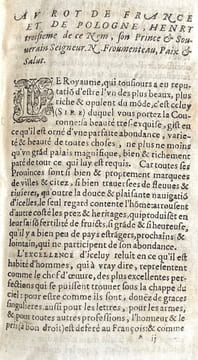 AV ROY DE FRANCE
ET DE POLOGNE, HENRY
troisieme de ce Nom, son Prince & Sou-
uerain Seigneur, N. Froumenteau, Paix &
Salut.
LE Royaume, qui tousiours a eu repu-
tatiõ d'estre l'vn des plus beaux, plus
riche & opulent du mõde, c'est celuy
(SIRE) duquel vous portez la Cou-
ronne: sa beauté tres-exquise, gist eu
ce qu'il est orné d'vne parfaite abondance, varie-
té & beauté de toutes choses, ne plus ne moins
qu'vn grãd palais magnifique, bien & richement
paré de tout ce qui luy est requis. Car toutes ses
Prouinces sont si bien & proptement marquees
de villes & citez, si bien trauersees de fleuues &
riuieres, qu'outre la douce & plaisante nauigatiõ
d'icelles, le seul regard contente l'hõme: entourné
d'autre costé les prez & heritages, qui produisẽt en
leurs saisõs fertilité de fruicts, si grãde & si heureuse,
qu'il y a bien peu de pays estrãgers, prochains &
lointain, qui ne participent de son abondance.
L'EXCELLENCE d'iceluy reluit en ce qu'il est
habité d'hommes, qui à vray dire, representent
comme le chef d'œuure, des plus excellentes perfe-
ctions qui se puissent trouuer sous la chappe du
ciel: pour estre comme ils sont, douëz de graces
singulieres, aussi pour les lettres, pour les armes,
& pour toutes autres professions, l'honneur & le
pris (à bon droit) est deferé au François: & comme
ij